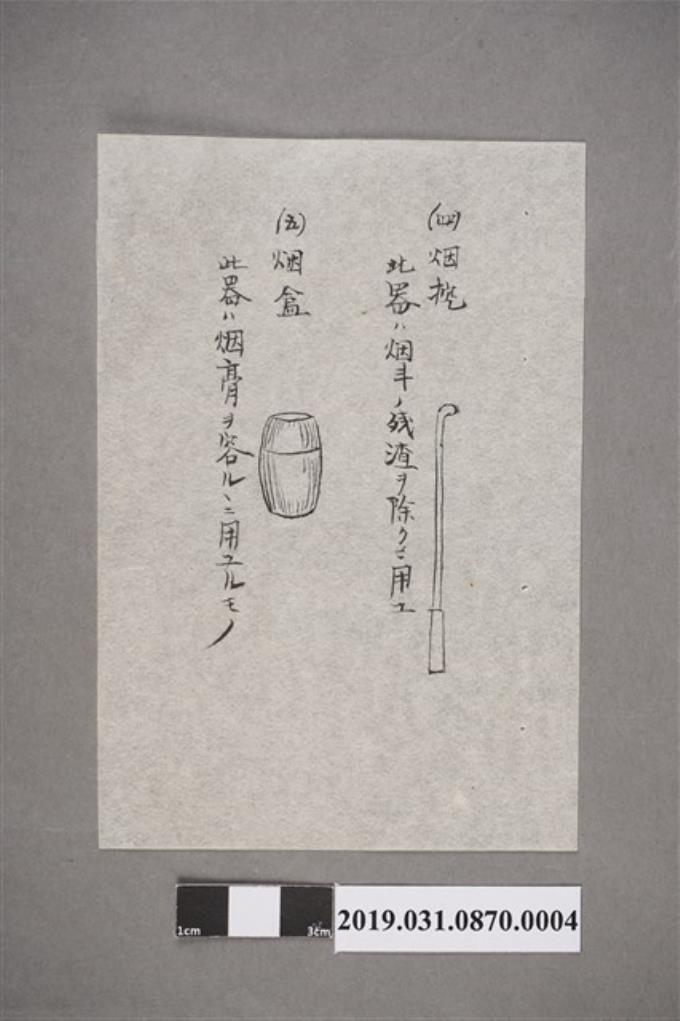 (四)烟挖
此器ハ烟斗ノ残渣ヲ除クニ用ユ
(五)烟盒
此器ハ烟膏ヲ容ルヽニ用ユルモノ
1cm 3cm
2019.031.0870.0004